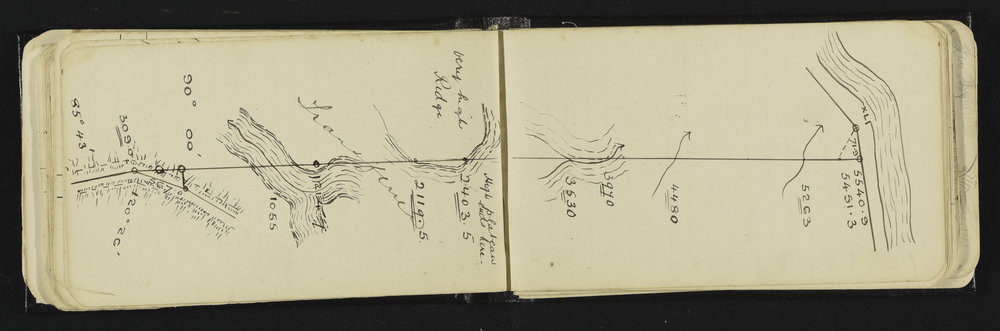 85° 43'
309.0
120° 20'
90° 00'
1055
very high
Ridge
2119.5
2403.5
High plateau
3530
3970
4480
5263
XLI
5540.9
5451.3